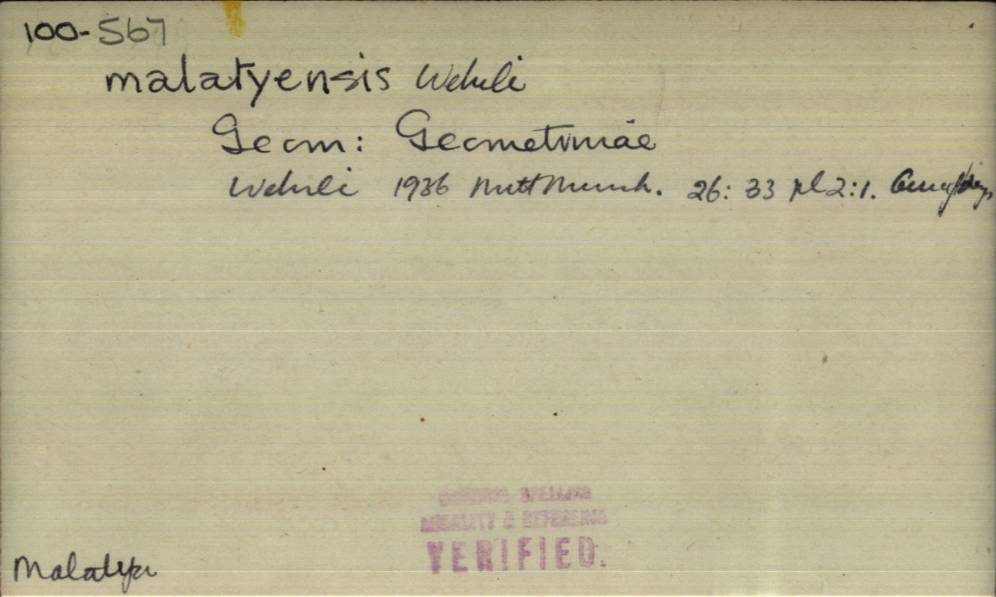 100-567
malatyensis Wehrli
Geom: Geometrinae
Wehrli 1936 Mitt Münch. 26: 33 pl 2:1.
ORIGINAL SPELLING
LOCALITY & REFERENCE
VERIFIED.
Malatya